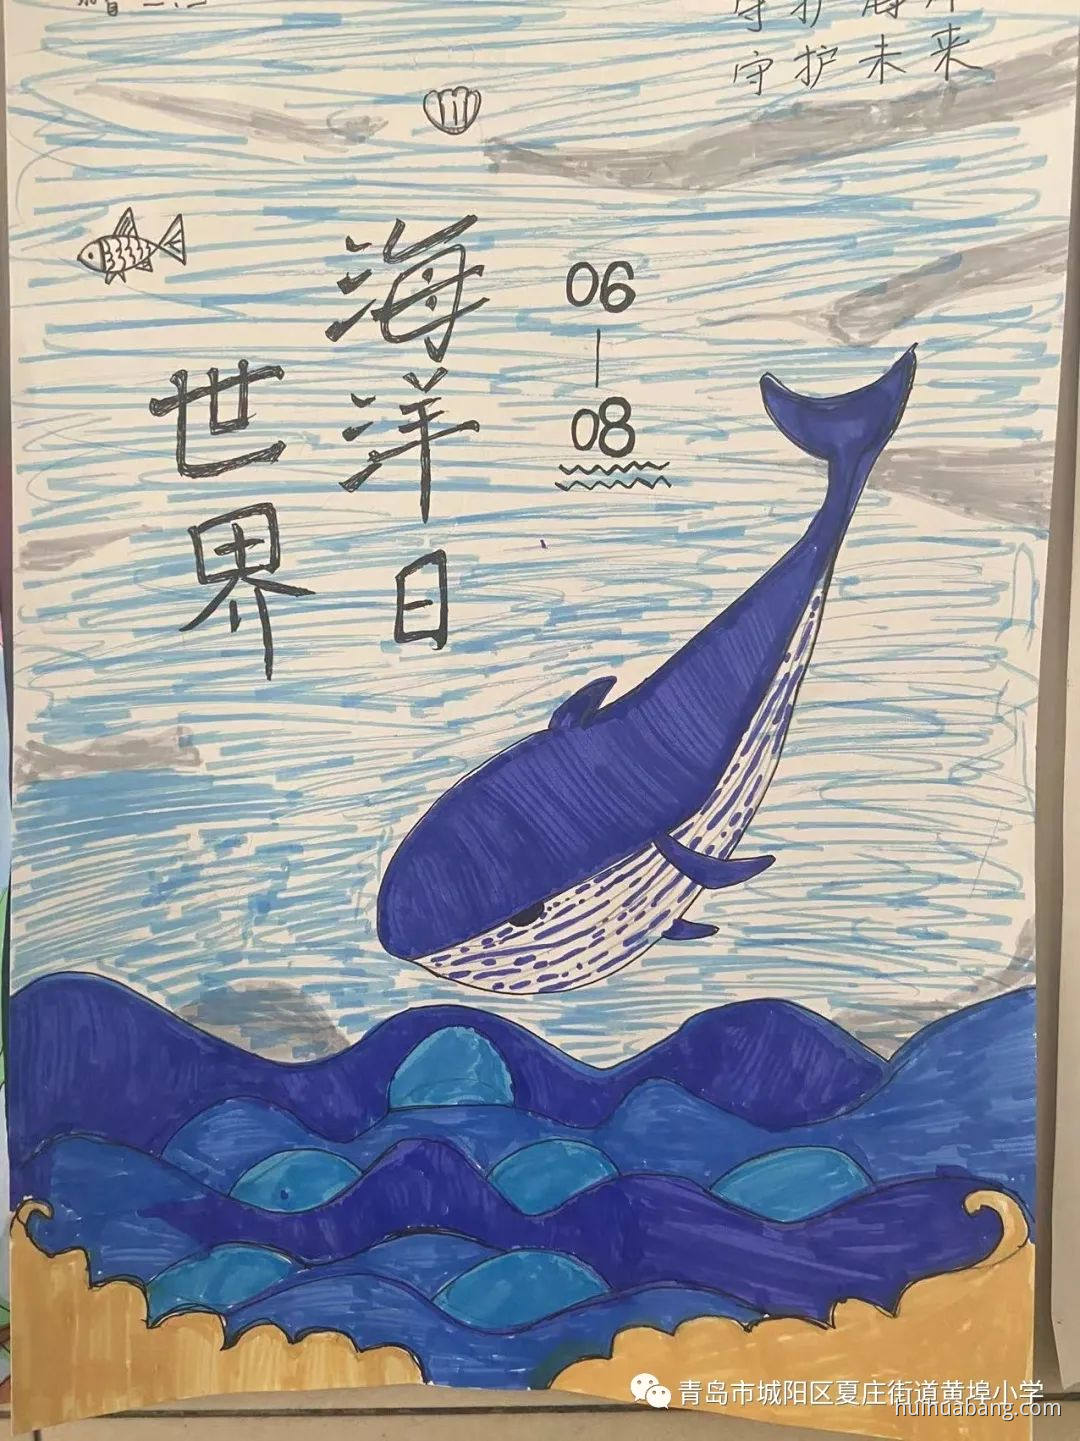 守护海洋
守护未来
世界
海洋日
06
08
青岛市城阳区夏庄街道黄埠小学
huihuabang.com